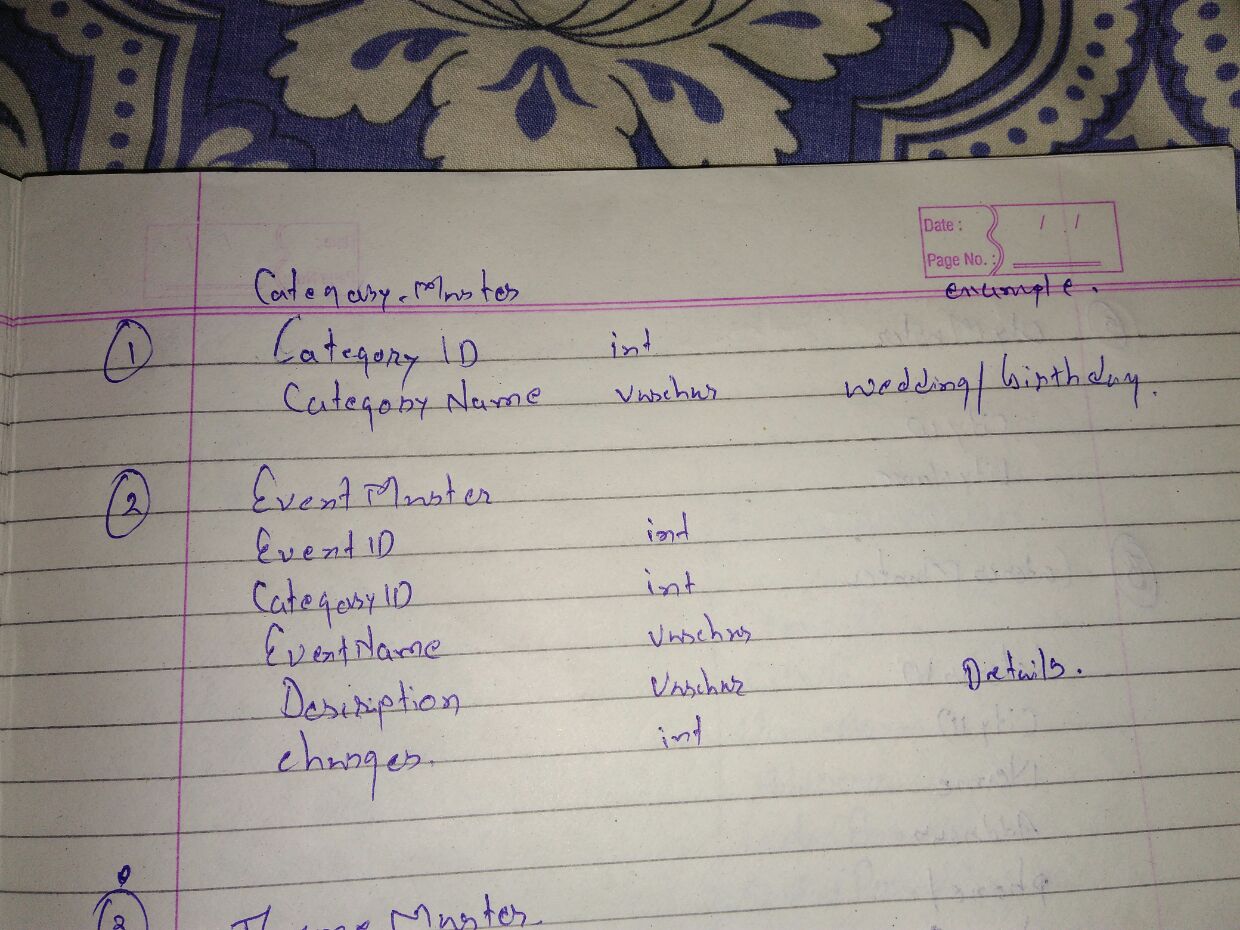 Date : / /
Page No. :
Category Master example.
1 Category ID int
Category Name varchar wedding/birthday.
2 Event Master
Event ID int
Category ID int
Event Name varchar
Desiription varchar Details.
charges. int
3 Master